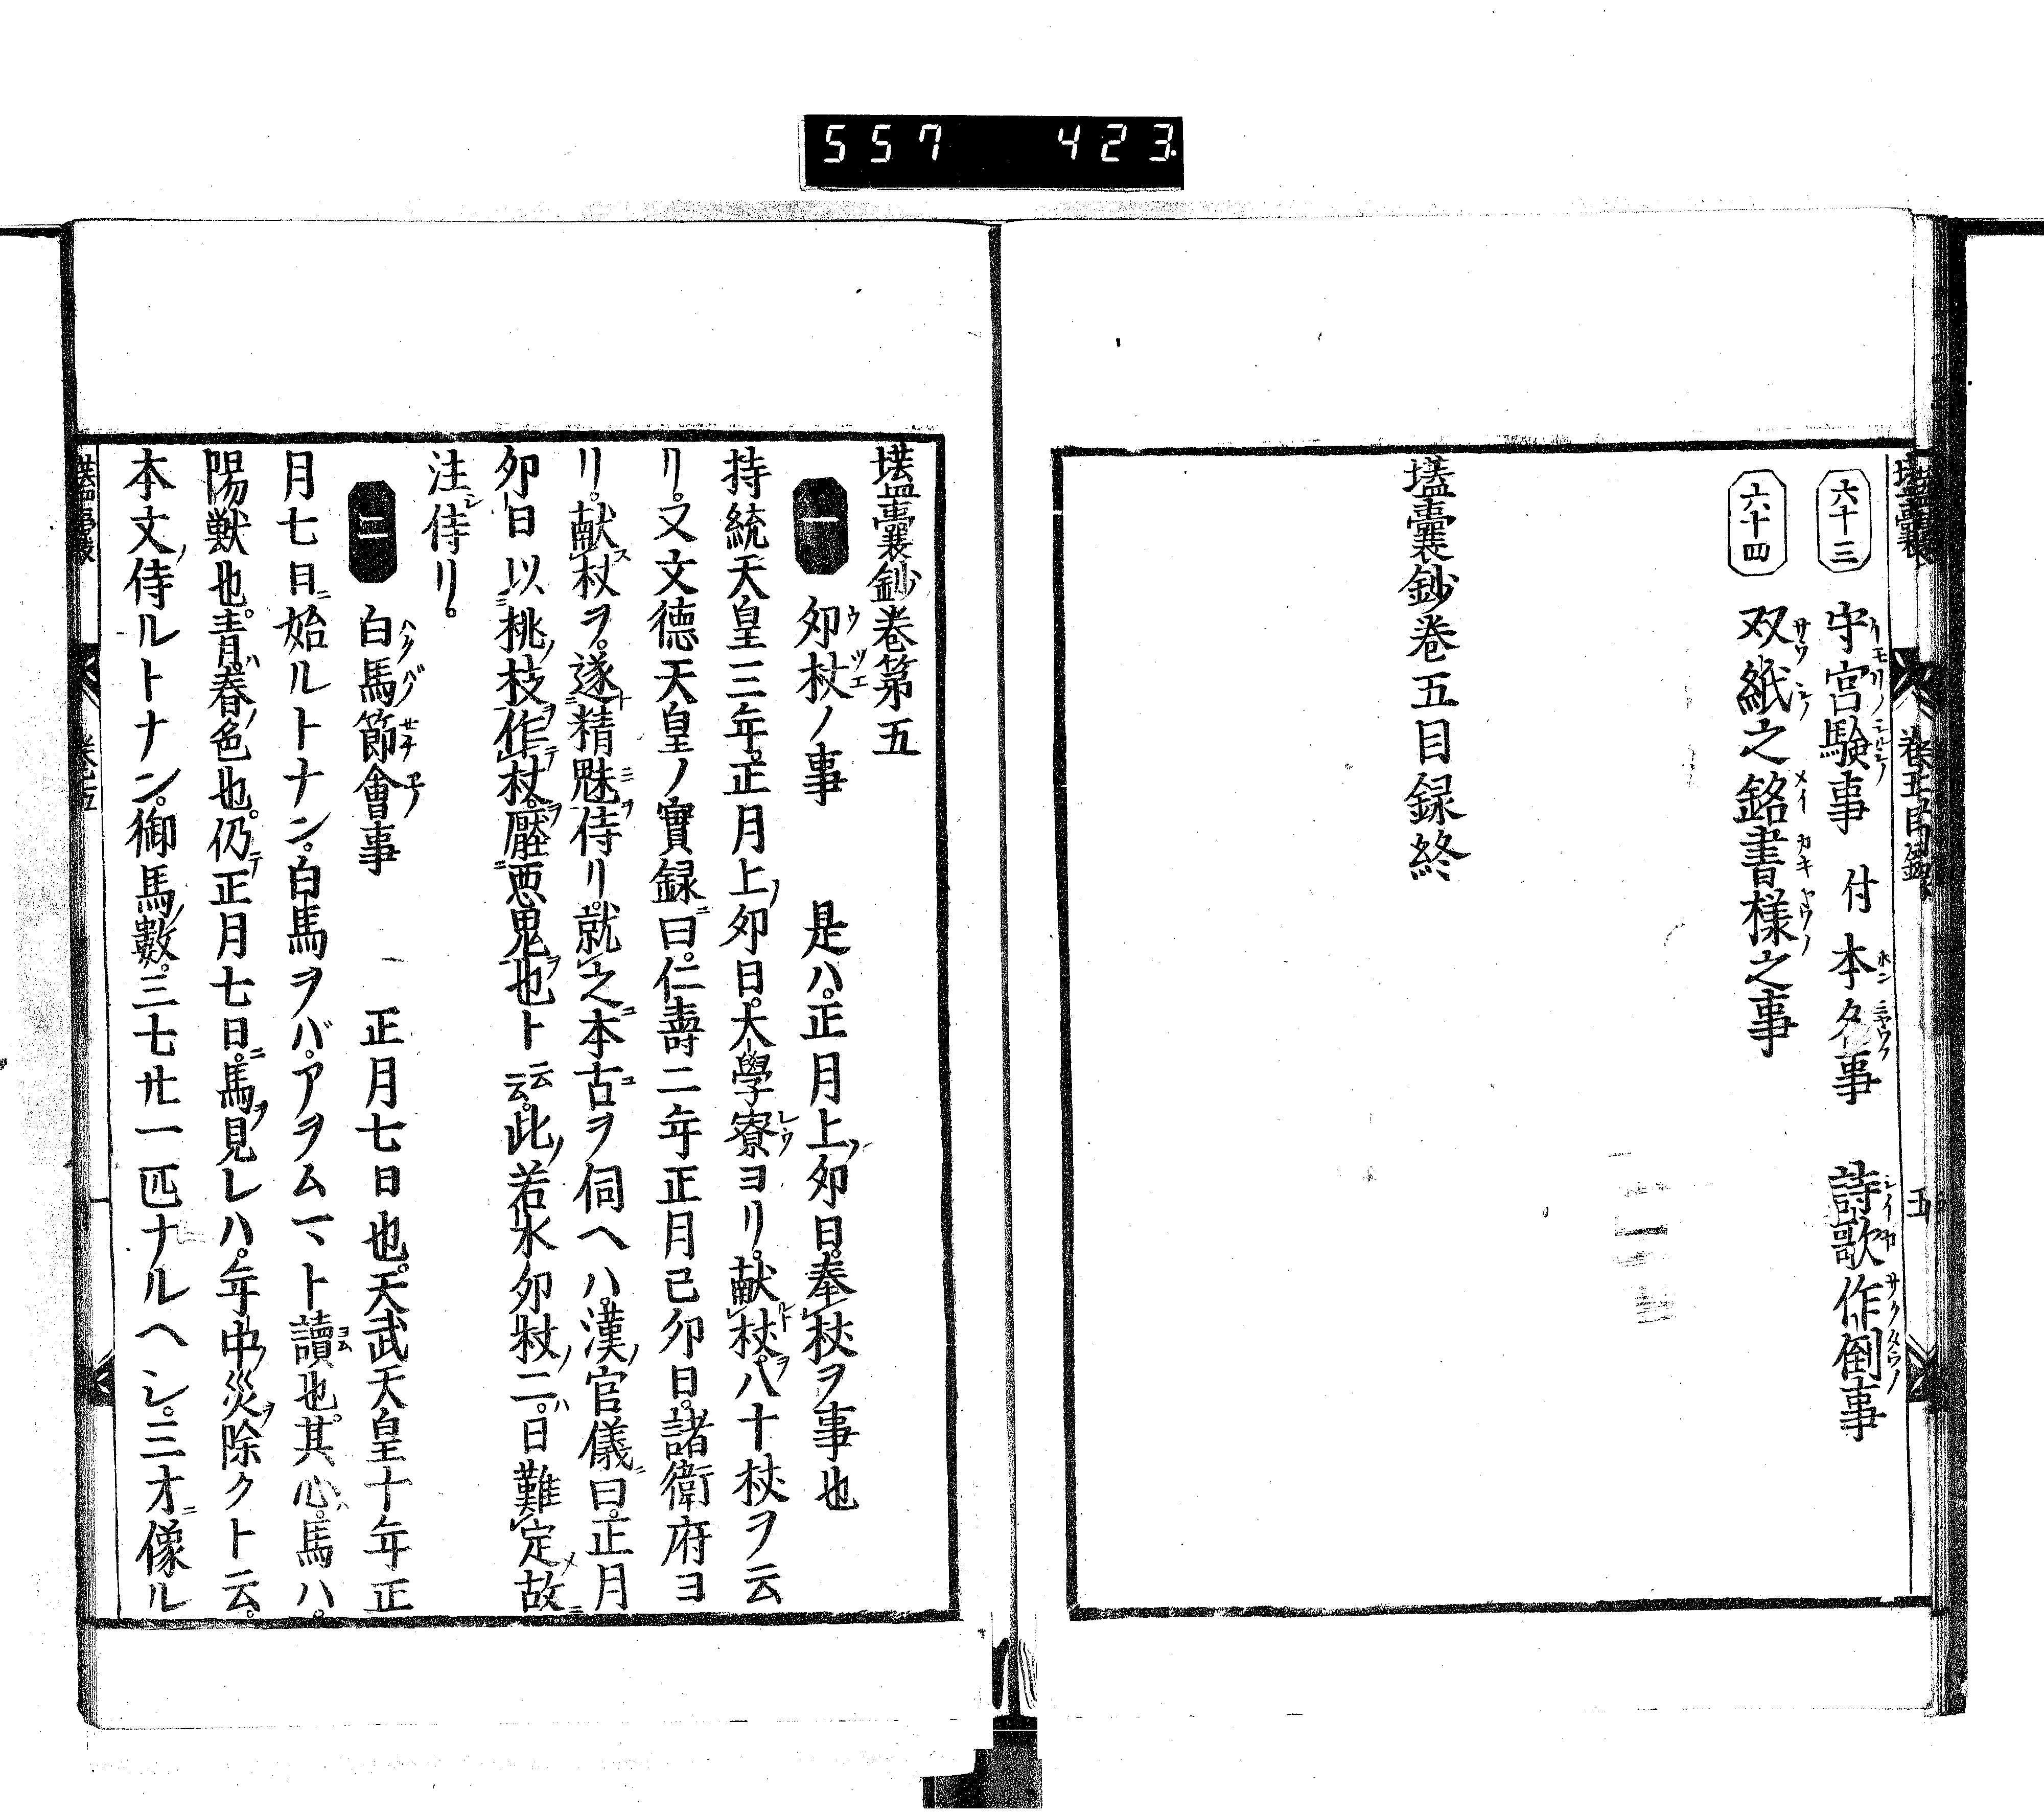 557 423
六十三 守宮験事 付 本名事 詩歌作倒事
六十四 双紙之銘書様之事
壒囊鈔巻五目録終
壒囊鈔巻第五
一 卯杖ノ事 是ハ。正月上ノ卯日。奉杖ヲ事也
持統天皇三年。正月上ノ卯日。大學寮ヨリ。献杖。八十杖ヲ云
リ。又文徳天皇ノ實録ニ曰。仁壽二年正月己卯日。諸衛府ヨ
リ。献杖ヲ。遂精魅侍リ。就之本古ヲ伺ヘハ。漢ノ官儀ニ曰。正月
卯日以桃ノ枝ヲ作テ杖。厭悪鬼ヲ也ト云云。此ノ若水卯杖ノ二ハ。日難定メ故ニ
注シ侍リ。
二 白馬節會事 正月七日也。天武天皇十年正
月七日ニ始ルトナン。白馬ヲバ。アヲムマト讀也。其心ハ。馬ハ。
陽獣也。青ハ。春ノ色也。仍テ正月七日ニ。馬ヲ見レハ。年中ノ災ヲ除クト云。
本文ノ侍ルトナン。御馬ノ數。三七廿一匹ナルヘシ。三才ニ像ル